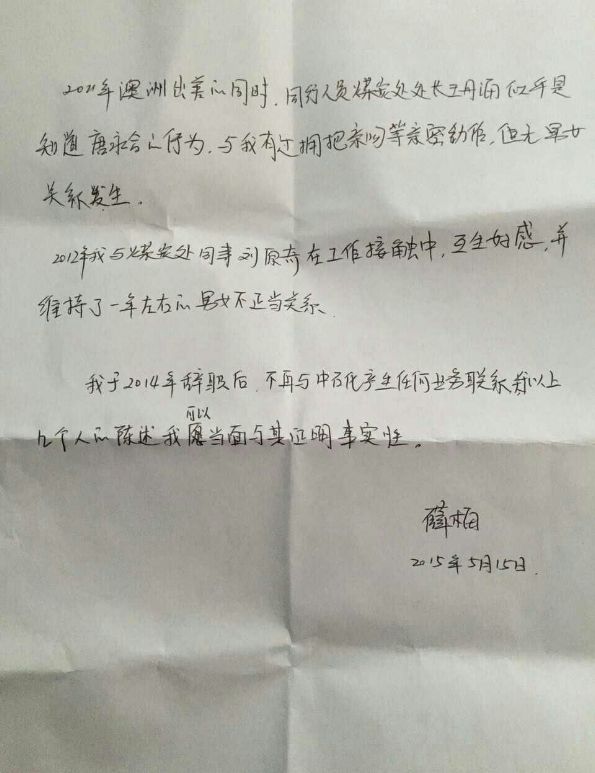 2011年澳洲出差的同时,同行人员煤炭处处长王丹涵似乎是
知道唐永合的行为,与我有过拥抱亲吻等亲密动作,但无男女
关系发生。
2012年我与煤炭处同事刘原奇在工作接触中,互生好感,并
维持了一年左右的男女不正当关系
我于2014年辞职后,不再与中石化产生任何业务联系 以上
可以
几个人的陈述我愿当面与其证明事实性。
薛梅
2015年5月15日.